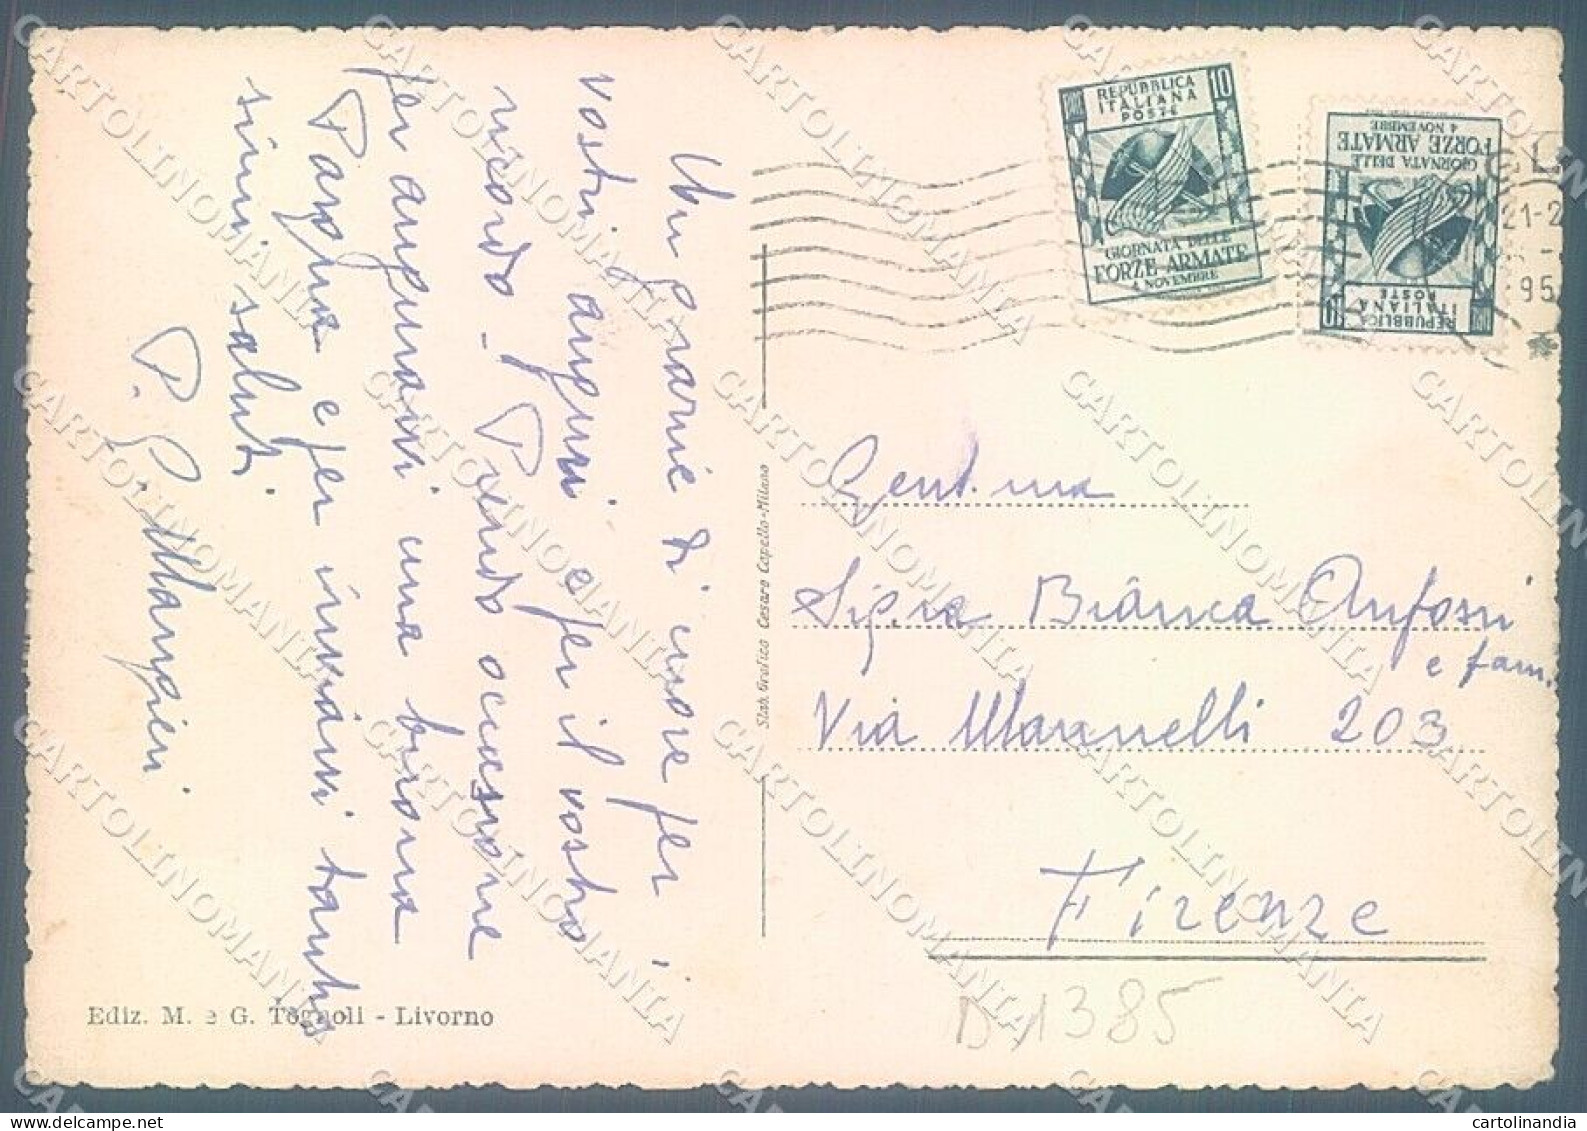 Un grazie di cuore per i
vostri auguri e per il vostro
ricordo. Prendo occasione
per augurarvi una buona
Pasqua e per inviarvi tanti
saluti
P. G.
REPUBBLICA
ITALIANA
POSTE
10
GIORNATA DELLE
FORZE ARMATE
4 NOVEMBRE
REPUBBLICA
ITALIANA
POSTE
10
GIORNATA DELLE
FORZE ARMATE
4 NOVEMBRE
21-2
95
Gent.ma
Sig.ra Bianca Anfossi
e fam.
Via Maranelli 203
Firenze
D 1385
Stab. Grafico Cesare Capello-Milano
Ediz. M. e G. Tognoli - Livorno
CARTOLINOMANIA
cartolinandia